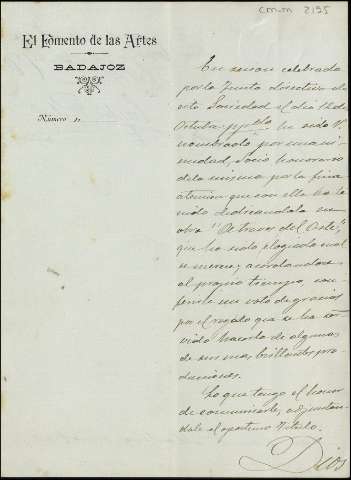 CM-M 2195
El Fomento de las Artes
BADAJOZ
Número
En sesion celebrada
por la Junta directiva de
esta Sociedad el dia 12 de
Octubre ha sido V.
nombrado, por unani-
midad, Socio honorario
de la misma por la fina
atencion que con ella ha te-
nido dedicandola su
obra "De traves del Arte",
que ha sido elogiada cual
se merece, acordandose
al propio tiempo, con-
ferirle un voto de gracias
por el regalo que se ha ser-
vido hacerla de algunas
de sus mas brillantes pro-
ducciones.
Lo que tengo el honor
de comunicarle, adjuntan-
dole el oportuno Título.
Dios